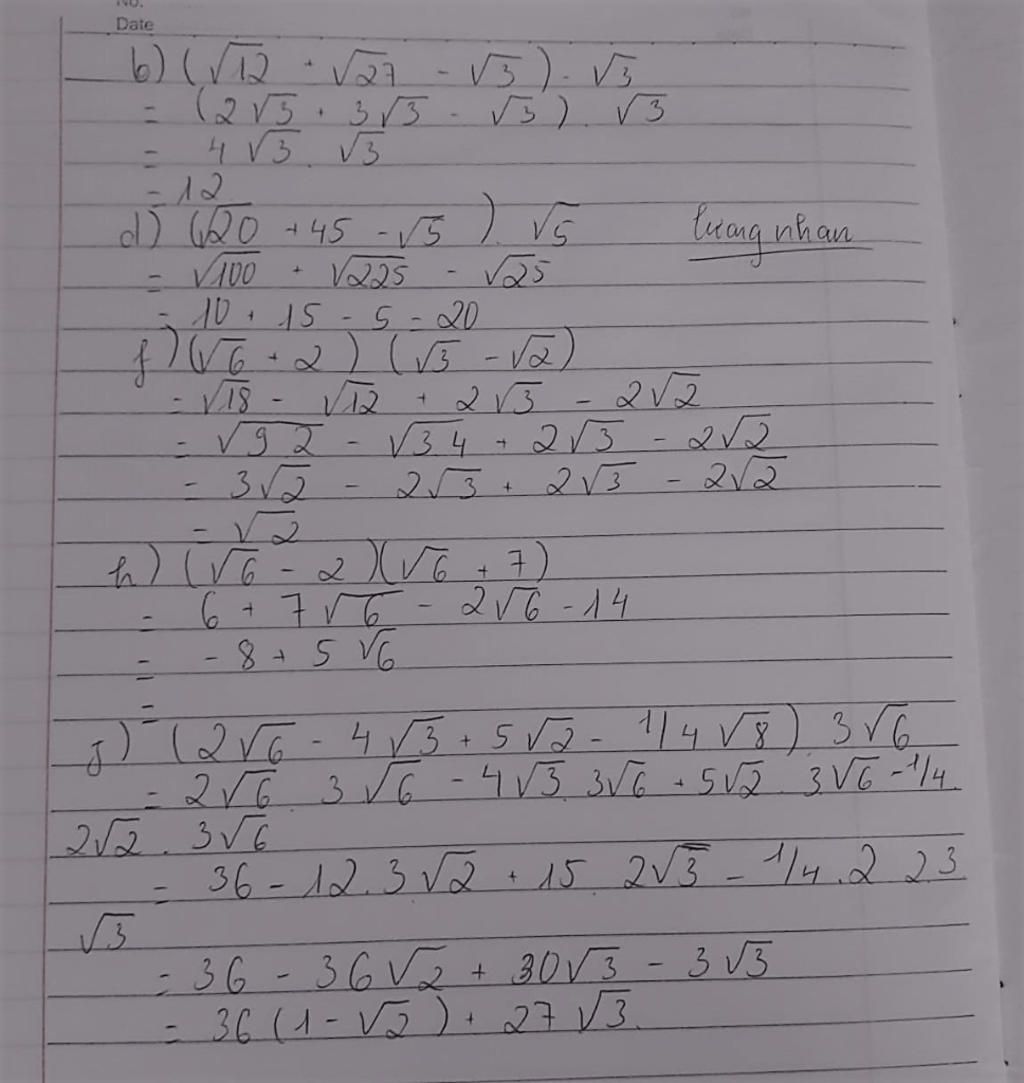 No.
Date
b) (√12 + √27 - √3) . √3
= (2√3 + 3√3 - √3) . √3
= 4√3 . √3
= 12
d) (√20 + 45 - √5) . √5 lương nhan
= √100 + √225 - √25
= 10 + 15 - 5 = 20
f) (√6 + 2) (√3 - √2)
= √18 - √12 + 2√3 - 2√2
= √9.2 - √3.4 + 2√3 - 2√2
= 3√2 - 2√3 + 2√3 - 2√2
= √2
h) (√6 - 2)(√6 + 7)
= 6 + 7√6 - 2√6 - 14
= -8 + 5√6
=
j) (2√6 - 4√3 + 5√2 - 1/4√8) 3√6
= 2√6 . 3√6 - 4√3 . 3√6 + 5√2 . 3√6 - 1/4 .
2√2 . 3√6
= 36 - 12.3√2 + 15 . 2√3 - 1/4 . 2 2.3
√3
= 36 - 36√2 + 30√3 - 3√3
= 36(1 - √2) + 27√3.